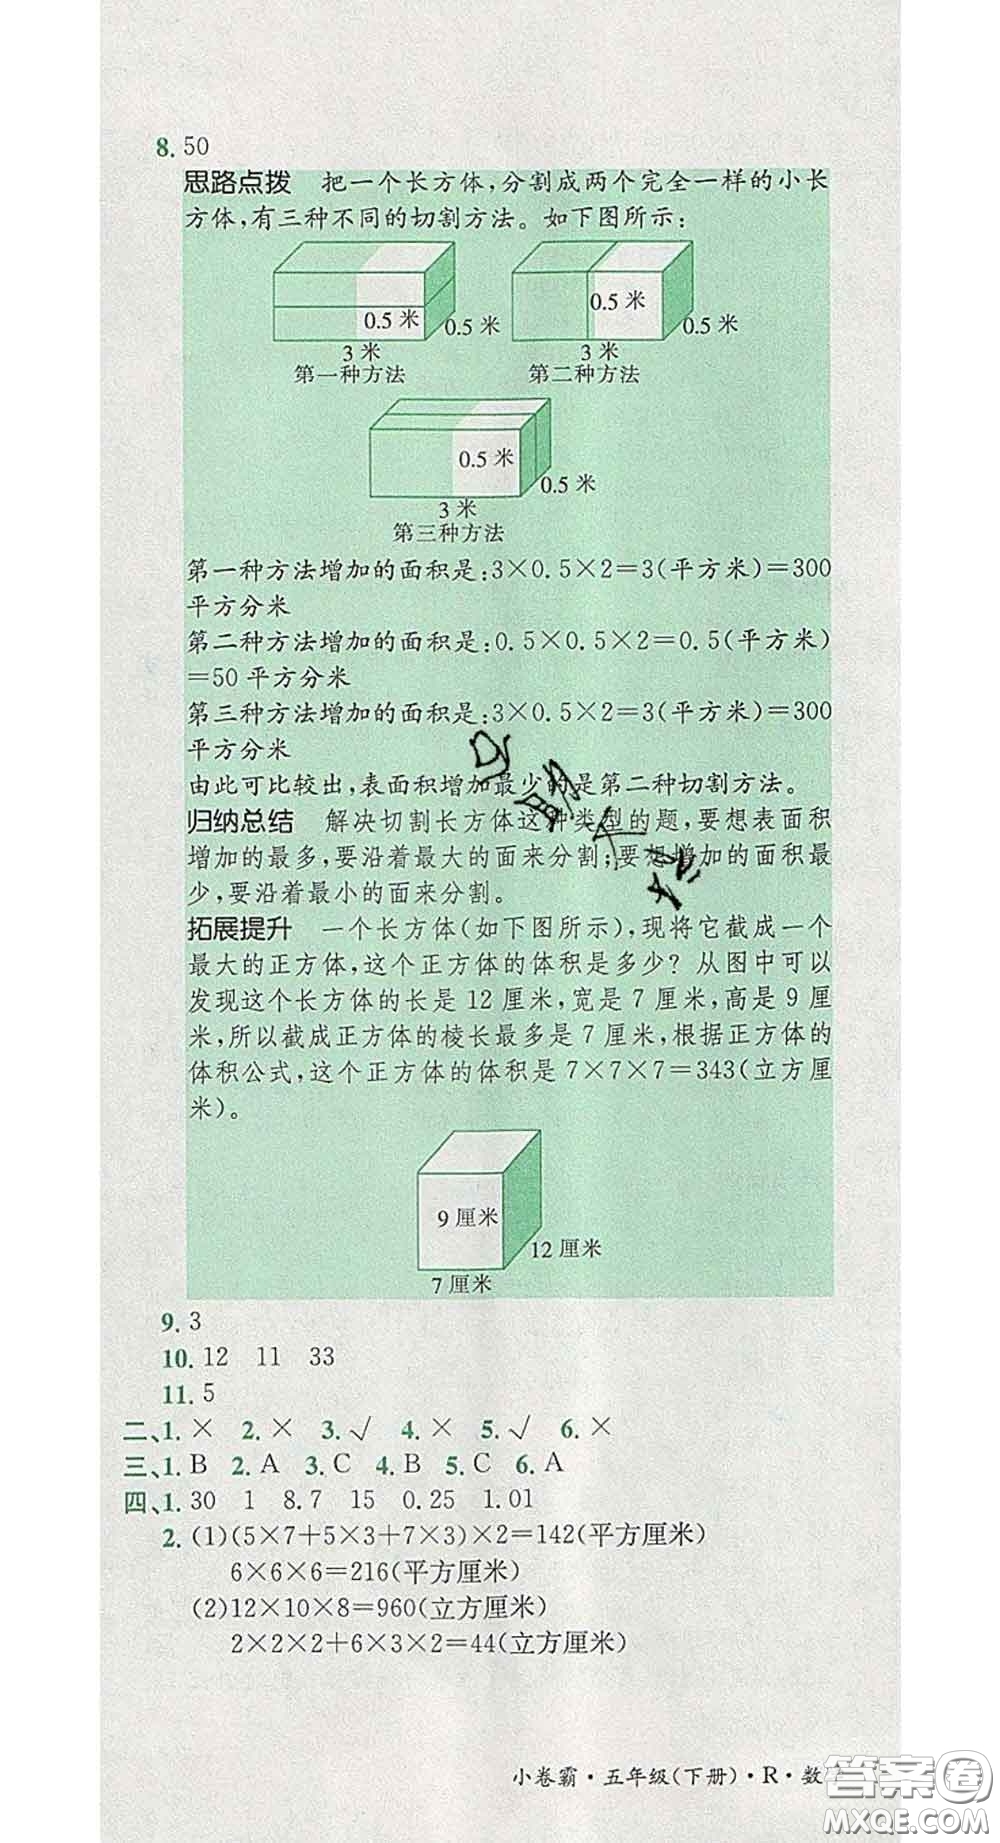 8. 50
思路点拨 把一个长方体,分割成两个完全一样的小长
方体,有三种不同的切割方法。如下图所示:
0.5 米
0.5 米
3 米
第一种方法
0.5 米
0.5 米
3 米
第二种方法
0.5 米
0.5 米
3 米
第三种方法
第一种方法增加的面积是:3×0.5×2=3(平方米)=300
平方分米
第二种方法增加的面积是:0.5×0.5×2=0.5(平方米)
=50 平方分米
第三种方法增加的面积是:3×0.5×2=3(平方米)=300
平方分米
由此可比较出,表面积增加最少的是第二种切割方法。
归纳总结 解决切割长方体这种类型的题,要想表面积
增加的最多,要沿着最大的面来分割;要想增加的面积最
少,要沿着最小的面来分割。
拓展提升 一个长方体(如下图所示),现将它截成一个
最大的正方体,这个正方体的体积是多少? 从图中可以
发现这个长方体的长是 12 厘米,宽是 7 厘米,高是 9 厘
米,所以截成正方体的棱长最多是 7 厘米,根据正方体的
体积公式,这个正方体的体积是 7×7×7=343(立方厘
米)。
9 厘米
12 厘米
7 厘米
9. 3
10. 12 11 33
11. 5
二、1. × 2. × 3. √ 4. × 5. √ 6. ×
三、1. B 2. A 3. C 4. B 5. C 6. A
四、1. 30 1 8.7 15 0.25 1.01
2. (1)(5×7+5×3+7×3)×2=142(平方厘米)
6×6×6=216(平方厘米)
(2)12×10×8=960(立方厘米)
2×2×2+6×3×2=44(立方厘米)
小卷霸·五年级(下册)·R·数
答案卷
MXQE.COM